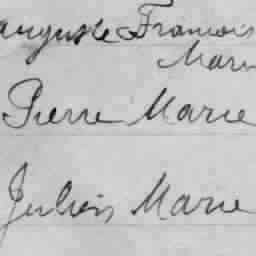 Auguste François
Marie
Pierre Marie
Julien Marie